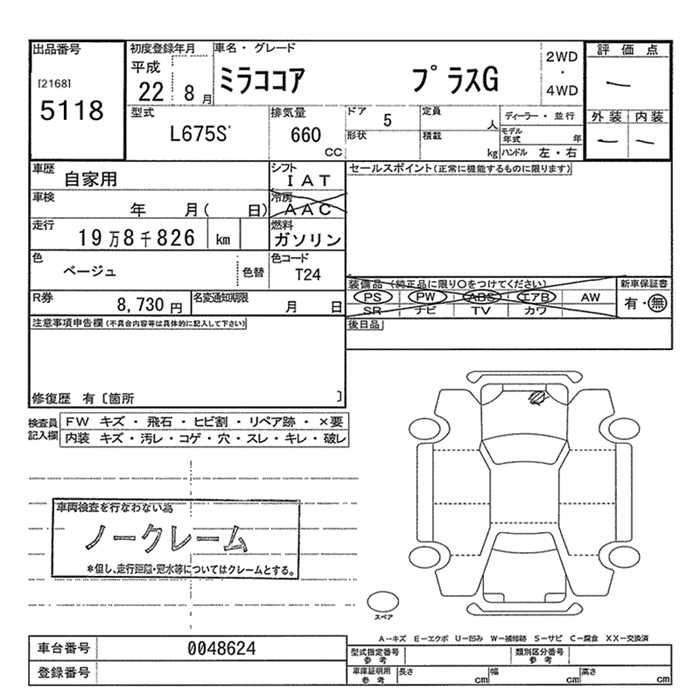 出品番号
[2168]
5118
初度登録年月
平成
22 8月
車名・グレード
ミラココア プラスG
2WD
・
4WD
評価点
―
外装 内装
― ―
型式
L675S
排気量
660
CC
ドア
5
形状
定員
人
積載
kg
ディーラー・並行
モデル年式 年
ハンドル 左・右
車歴
自家用
シフト
IAT
車検
年 月( 日)
冷房
AAC
走行
19万8千826 km
燃料
ガソリン
色
ベージュ
色替
色コード
T24
R券
8,730 円
名変通知期限
月 日
セールスポイント(正常に機能するものに限ります)
装備品 (純正品に限り○をつけてください)
PS PW ABS エアB AW
SR ナビ TV カワ
新車保証書
有・無
後日品
注意事項申告欄 (不具合内容等は具体的に記入して下さい)
修復歴 有 [箇所 ]
検査員
記入欄
FW キズ・飛石・ヒビ割・リペア跡・×要
内装 キズ・汚レ・コゲ・穴・スレ・キレ・破レ
車両検査を行なわない為
ノークレーム
*但し、走行距離・冠水等についてはクレームとする。
スペア
A―キズ E―エクボ U―凹み W―補修跡 S―サビ C―腐食 XX―交換済
車台番号
0048624
登録番号
型式指定番号
参考
類別区分番号
参考
車庫証明用
参考
長さ cm
幅 cm
高さ cm